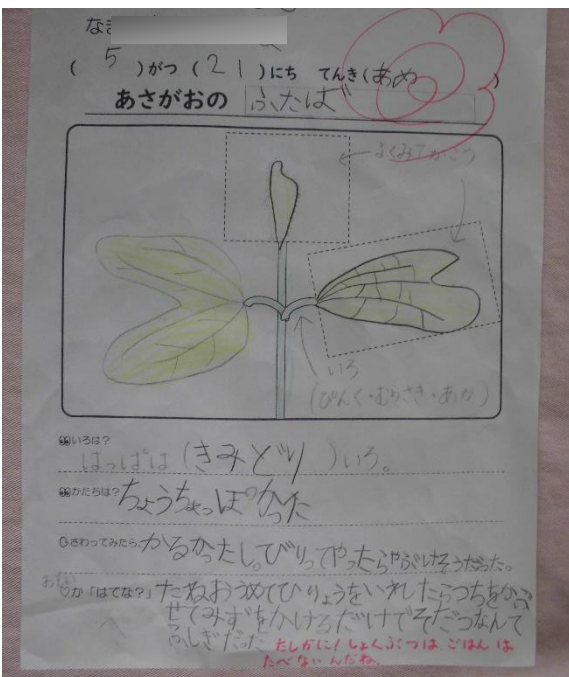 なま
( 5 )がつ ( 21 )にち てんき(あめ )
あさがおの ふたば
よくみてかこう
いろ
(ぴんく・むらさき・あか)
いろは?
はっぱは (きみどり )いろ。
かたちは? ちょうちょっぽかった
さわってみたら、かるかったし。びりってやったらやぶけそうだった。
おもい か「はてな?」 たねおうめてひりょうをいれたらつちをかぶ
せてみずをかけるだけでそだつなんて
ふしぎだった たしかに! しょくぶつは、ごはん は
たべないんだね。